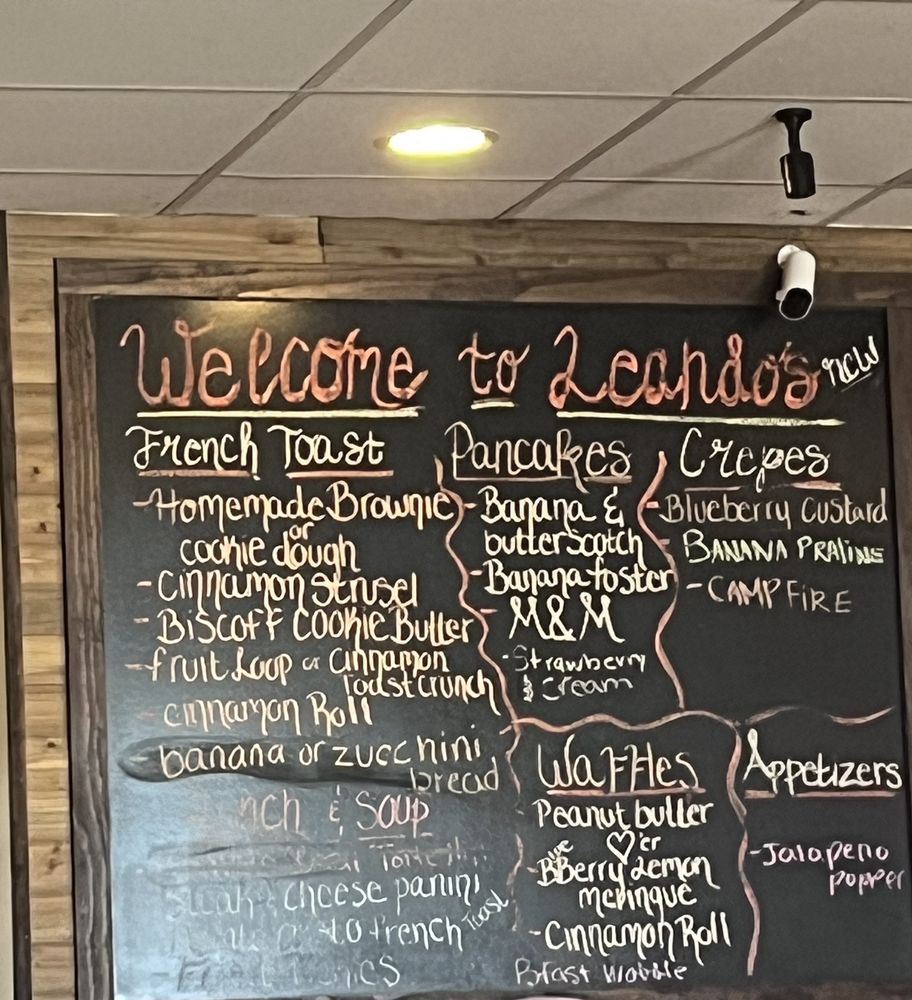 Welcome to Leando's new
French Toast
- Homemade Brownie
or
cookie dough
- Cinnamon Strusel
- Biscoff Cookie Butter
- fruit Loop or Cinnamon
Toast crunch
- cinnamon Roll
- banana or zucchini
bread
& Soup
cheese panini
to french Toast
Pancakes
- Banana &
butterscotch
- Banana foster
- M&M
- Strawberry
& Cream
Crepes
- Blueberry Custard
- BANANA PRALINE
- CAMPFIRE
Waffles
Peanut butter
♡'er
- Blue BBerry Lemon
meringue
- Cinnamon Roll
Appetizers
- Jalapeno
popper